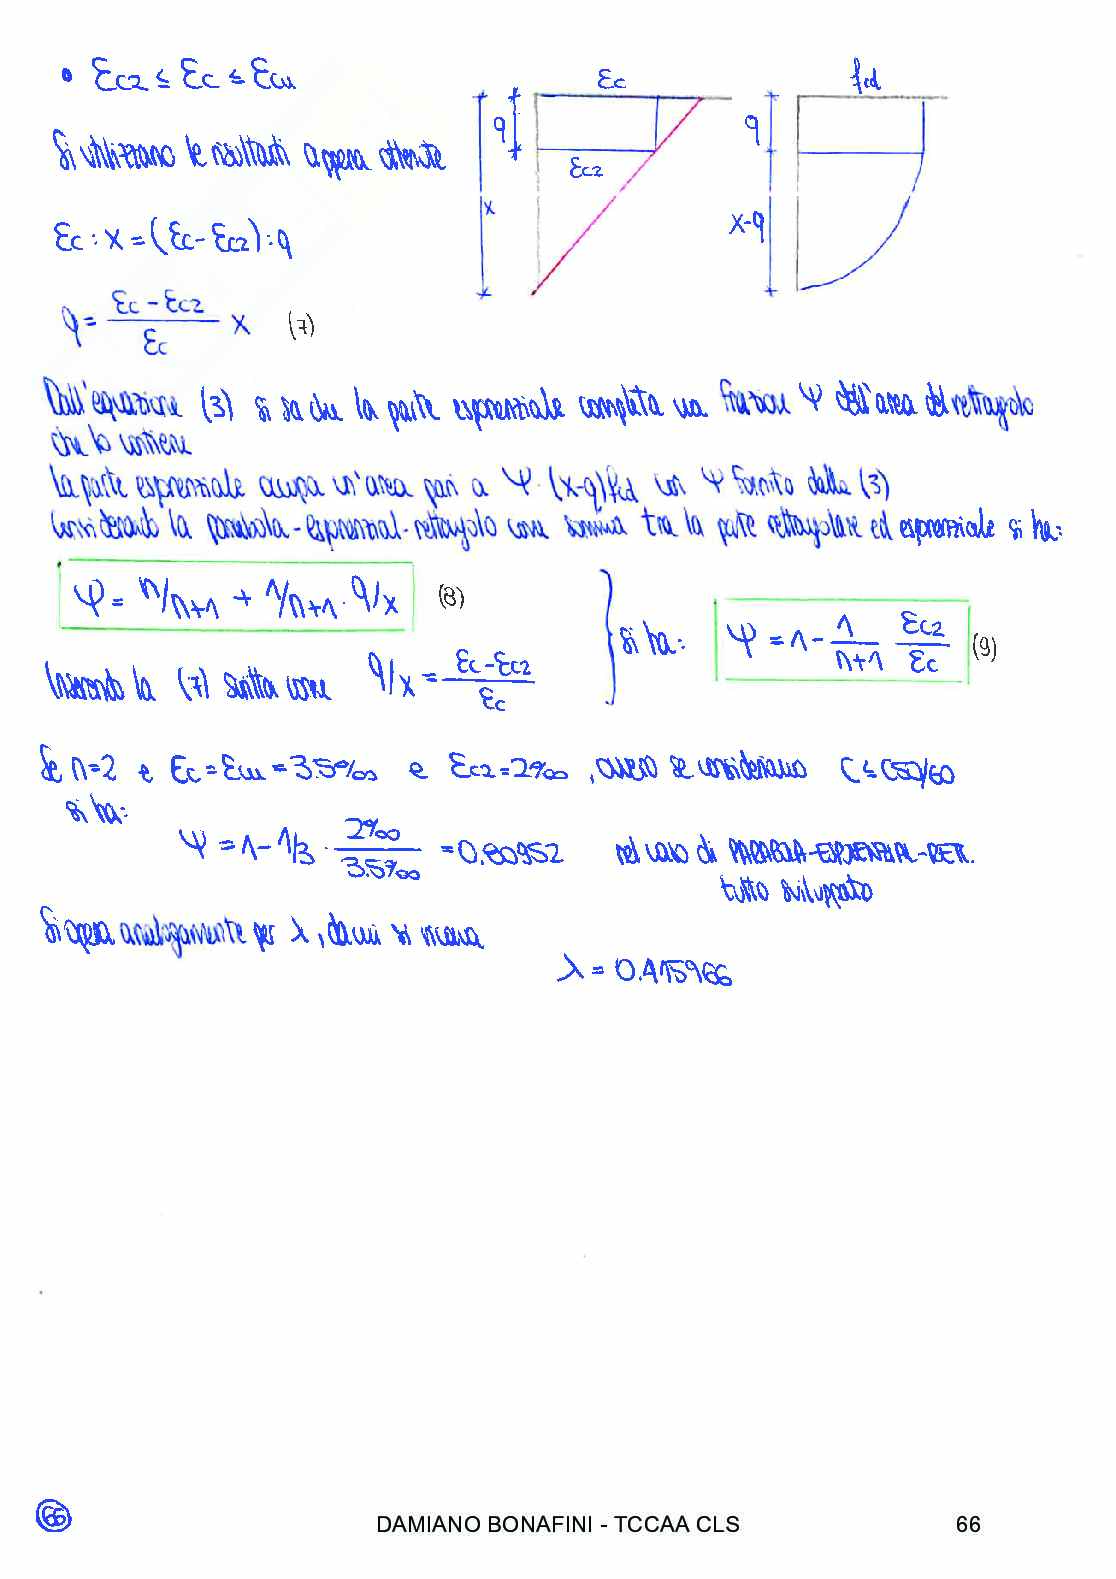 • εc2 ≤ εc ≤ εcu
εc
fcd
q
q
Si utilizzano le risultanti appena ottenute
εc2
x
x-q
εc : x = (εc - εc2) : q
q = (εc - εc2)/εc x (7)
Dall'equazione (3) si sa che la parte esponenziale completa va frazione Ψ dell'area del rettangolo
che lo contiene
La parte esponenziale occupa un'area pari a Ψ · (x-q) fcd con Ψ fornito dalla (3)
Considerando la parabola-esponenzial-rettangolo come somma tra la parte rettangolare ed esponenziale si ha:
Ψ = n/n+1 + 1/n+1 · q/x (8)
si ha: Ψ = 1 - 1/n+1 εc2/εc (9)
Inserendo la (7) scritta come q/x = (εc - εc2)/εc
Se n=2 e εc = εcu = 3.5‰ e εc2 = 2‰, ovvero se consideriamo C ≤ C50/60
si ha:
Ψ = 1 - 1/3 · 2‰/3.5‰ = 0.80952 nel caso di PARABOLA-ESPONENZIAL-RETT.
tutto sviluppato
Si opera analogamente per λ, da cui si ricava
λ = 0.415966
66
DAMIANO BONAFINI - TCCAA CLS 66